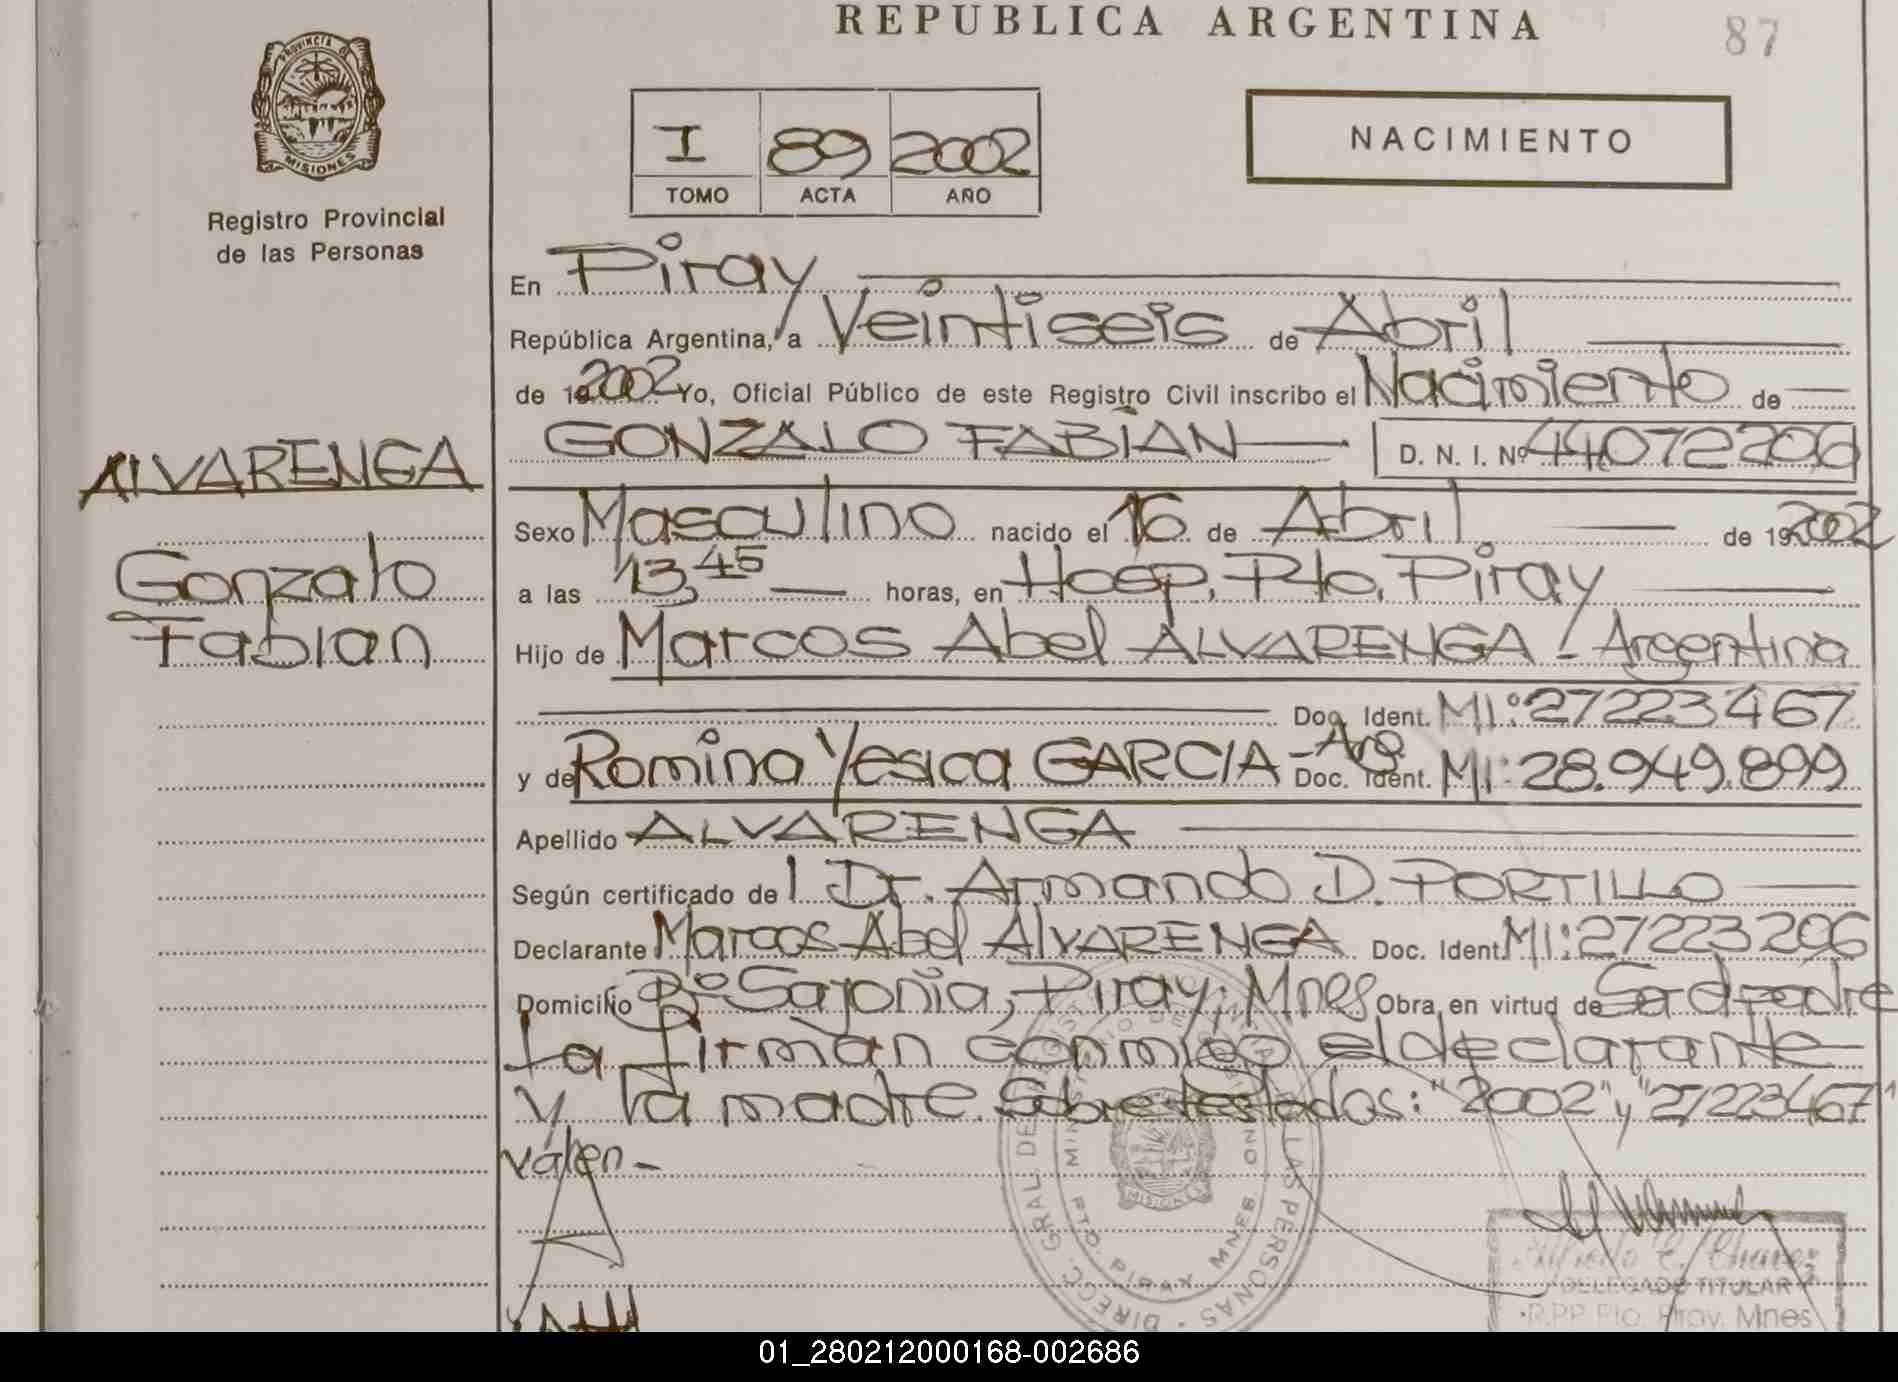 REPUBLICA ARGENTINA
87
PROVINCIA DE
MISIONES
Registro Provincial
de las Personas
I 89 2002
TOMO ACTA AÑO
NACIMIENTO
En Piray
República Argentina, a Veintiseis de Abril
de 19 2002 Yo, Oficial Público de este Registro Civil inscribo el Nacimiento de
GONZALO FABIAN D. N. I. Nº 44072206
ALVARENGA
Gonzalo
Fabian
Sexo Masculino nacido el 16 de Abril de 19 2002
a las 13,45 horas, en Hosp. Pto. Piray
Hijo de Marcos Abel ALVARENGA - Argentina
Doc. Ident. MI: 27223467
y de Romina Yesica GARCIA - Arg. Doc. Ident. MI: 28.949.899
Apellido ALVARENGA
Según certificado de l Dr. Armando D. PORTILLO
Declarante Marcos Abel ALVARENGA Doc. Ident. MI: 27223206
Domicilio Bº Sajonia, Piray, Mnes Obra en virtud de Ser padre
La firman conmigo el declarante
y la madre. Sobrerestados: "2002" y "27223467"
valen -
DIRECC. GRAL. DE LAS PERSONAS
PTO PIRAY MNES
MISIONES
DELEGADO TITULAR
R.PP. Pto. Piray, Mnes
01_280212000168-002686